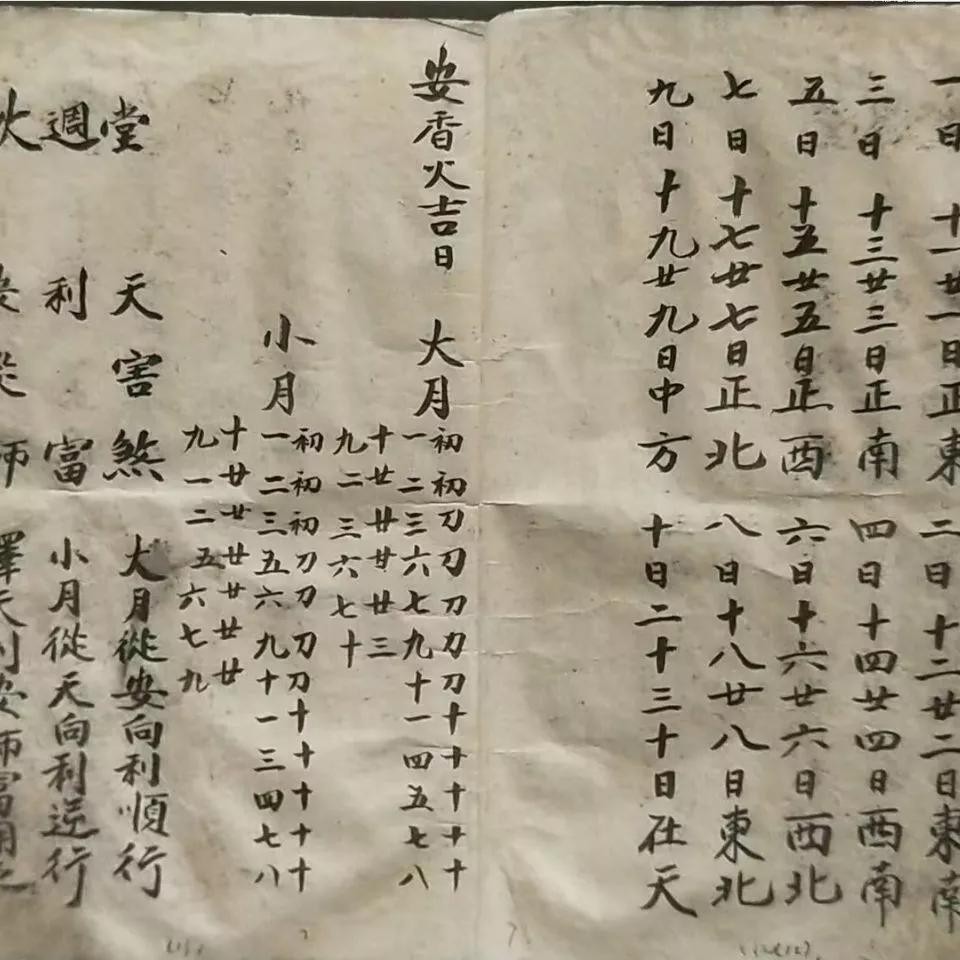 一日十一廿一日正東 二日十二廿二日東南
三日十三廿三日正南 四日十四廿四日西南
五日十五廿五日正西 六日十六廿六日西北
七日十七廿七日正北 八日十八廿八日東北
九日十九廿九日中方 十日二十三十日在天
安香火吉日 大月
初初刀刀刀刀刀十十十十十
一二三六七九十一四五七八
十廿廿廿廿三
九二三六七十
小月
初初初刀刀刀刀十十十十十
一二三五六九十一三四七八
十廿廿廿廿廿廿
九一二五六七九
火週堂
天害煞 大月從安向利順行
利富 小月從天向利逆行
師 天利安師富用之